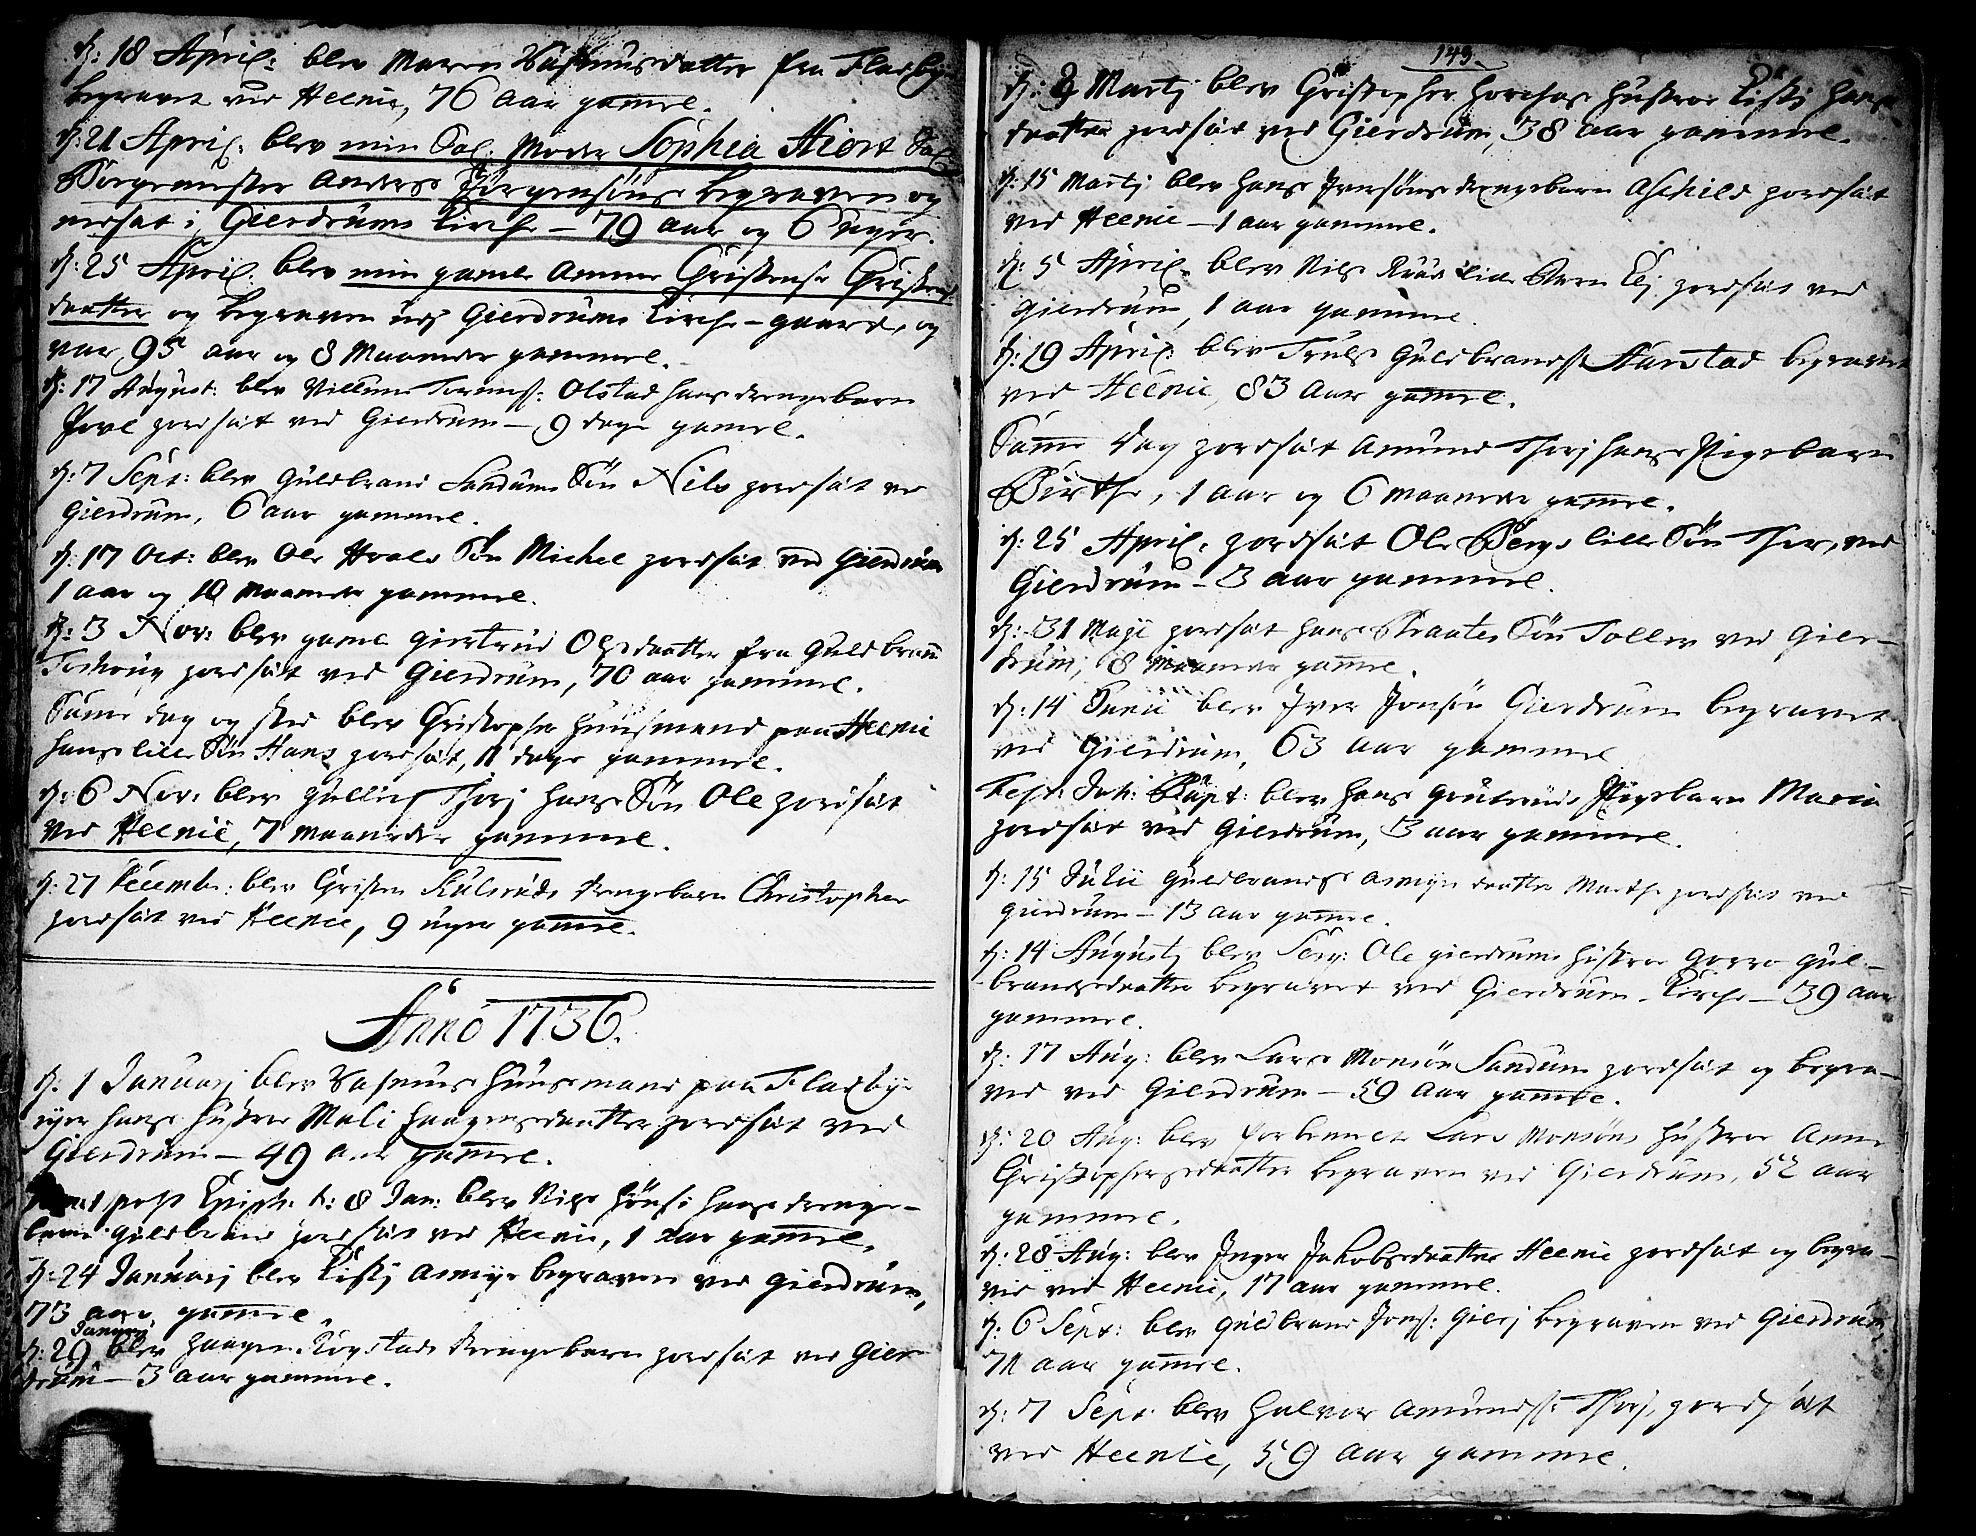 d: 18 April: blev Maren Rasmusdatter fra Fladby
begravet ved Heenie, 76 aar gammel.
d: 21 April: blev min Sal: Moder Sophia Hiort Sal:
Borgemester Anders Jörgensöns begraven og
nedsat i Gierdrums Kirche – 79 aar og 6 uger.
d: 25 April: blev min gamle Amme Christense Christens
daatter og begraven ved Gierdrums Kirche-gaard, og
var 95 aar og 8 Maaneder gammel.
d: 17 August: blev Villum Olstad hans drengebarn
Jove jordsat ved Gierdrum – 9 dage gamel.
d: 7 Sept: blev Guldbrand Sandums Sön Nils jordsat ved
Gierdrum, 6 aar gammel.
d: 17 Oct: blev Ole Sön Michel jordsat ved Gierdrum
1 aar og 10 Maaneder gammel.
d: 3 Nov: blev gamle Giertrud Olsdaatter fra Guldbrand
jordsat ved Gierdrum, 70 aar gammel.
Samme dag og sted blev Christopher Huusmand paa Heenie
hans lille Sön Hans jordsat, 11 dage gammel.
d: 6 Nov: blev Thorj hans Sön Ole jordsat
ved Heenie, 7 maaneder gammel.
d: 27 Decembr: blev Christen Kulsruds drengebarn Christopher
jordsat ved Heenie, 9 uger gamel.
Anno 1736.
d. 1 Januarj blev Rasmus Huusmand paa Fladbye
eyer hans Hustroe Mali Haagensdaatter jordsat ved
Gierdrum – 49 aar gamel.
1 post Epiph. d: 8 Jan: blev Nils Hönsi hans drenge-
barn Guldbrand jordsat ved Heenie, 1 aar gamel.
d: 24 Januarj blev Kistj Asmyr begraven ved Gierdrum,
73 aar gamel.
Januarj
d: 29 blev Haagen Rogstads drengebarn jordsat ved Gier-
drum – 3 aar gammel.
143.
d: 9 Martj blev Christopher Hustroe Kistj Hans
daatter jordsat ved Gierdrum, 38 aar gammel.
d: 15 Martj blev Hans Jversöns drengebarn Aschild jordsat
ved Heenie – 1 aar gammel.
d: 5 April: blev Nils Ruud lille jordsat ved
Gierdrum, 1 aar gammel.
d: 19 April: blev Truls Guldbrands: Aurstad begravet
ved Heenie, 83 Aar gamel.
Samme Dag jordsat Amund Thorj hans Pigebarn
Birthe, 1 aar og 6 maaneder gamel.
d: 25 April: jordsat Ole Bergs lille Sön Thor, ved
Gierdrum – 3 aar gammel.
d: 31 Maji jordsat Hans Sön Tollev ved Gier-
drum, 8 Maaneder gamel.
d: 14 Junii blev Jver Jonsön Gierdrum begravet
ved Gierdrum, 63 aar gammel
Fest: Joh: Bapt: blev Hans Pigebarn Maria
jordsat ved Gierdrum, 3 aar gammel.
d: 15 Julii Guldbrands Asmyr daatter Marthe jordsat ved
Gierdrum – 13 aar gamel.
d: 14 Augustj blev Serg: Ole Gierdrums Hustroe Gul-
brandsdaatter begravet ved Gierdrum Kirche – 39 aar
gammel.
d: 17 Aug: blev Lars Monsön Sandum jordsat og begra-
ved ved Gierdrum – 59 Aar gamel.
d: 20 Aug: blev Lars Monsöns Hustroe Anne
Christophersdaatter begraven ved Gierdrum, 52 aar
gammel.
d: 28 Aug: blev Jnger Jakobsdaatter Heenie jordsat og begra-
vet ved Heenie, 17 aar gammel.
d: 6 Sept: blev Guldbrand Jons: Gierj begraven ved Gierdrum,
71 aar gamel.
d: 7 Sept blev Halvor Amunds: Thorj, jordsat
ved Heenie, 59 aar gammel.